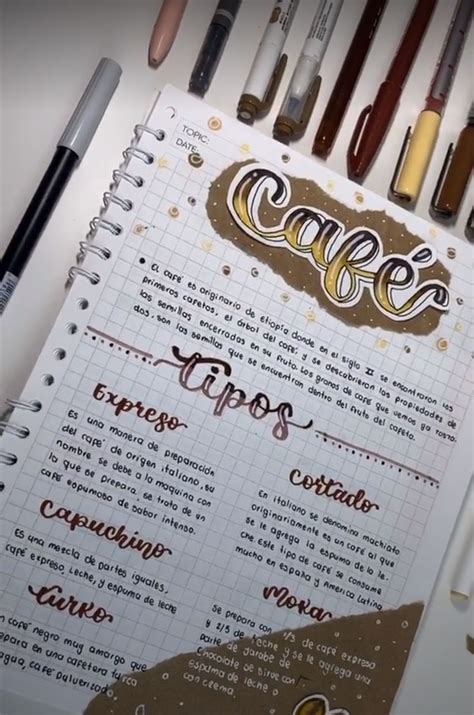 TOPIC:
DATE:
Café
• El café es originario de etiopía donde en el siglo II se encontraron los
primeros cafetos, el árbol del café, y se descubrieron las propiedades de
las semillas encerradas en su fruto. Los granos de café que vemos ya tosta-
dos, son las semillas que se encuentran dentro del fruto del cafeto.
Tipos
Expreso
Es una manera de preparación
del café de origen italiano, su
nombre se debe a la maquina con
lo que se prepara, se trata de un
café espumoso de sabor intenso.
Cortado
En italiano se denomina machiato
originariamente es un café al que
se le agrega la espuma de la le-
che. Este tipo de café se consume
mucho en españa y America Latina
Capuchino
Es una mezcla de partes iguales,
café expreso, leche, y espuma de leche
Turko
café negro muy amargo que
prepara en una cafetera turca
agua, café pulverizado
Moka
Se prepara con 1/3 de café expreso
y 2/3 de leche y se le agrega una
parte de jarabe de
chocolate se sirve con
espuma de leche o
con crema.